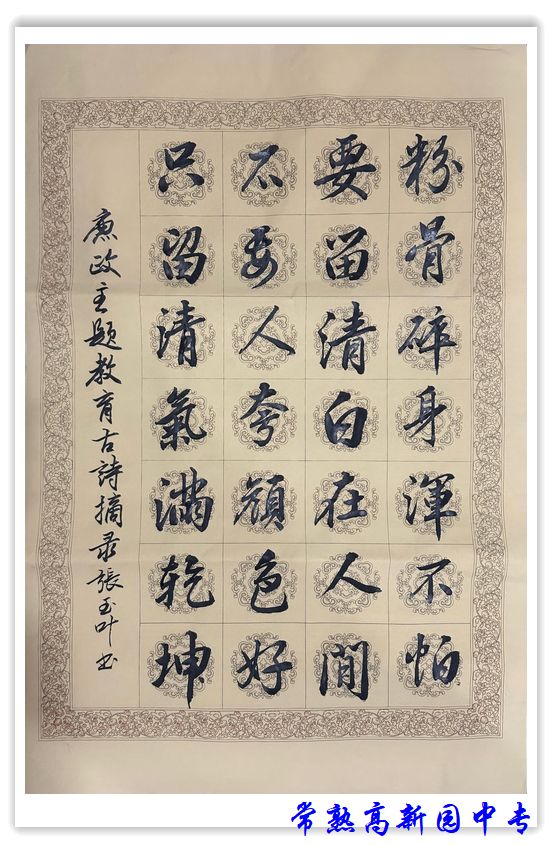 粉骨碎身渾不怕
要留清白在人間
不要人夸顔色好
只留清氣滿乾坤
廉政主題教育古詩摘录張玉叶书
常熟高新园中专